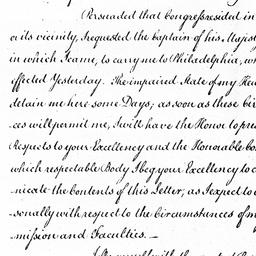 Persuaded that Congress resided in
or its vicinity, I requested the Captain of his Majest
in which I came, to carry me to Philadelphia, wh
effected Yesterday. The impaired State of my Hea
detain me here some Days; as soon as these cir
ces will permit me, I will have the Honor to pre
Respects to your Excellency and the Honorable Co
which respectable Body I beg your Excellency to c
nicate the contents of this Letter; as I expect to c
sonally with respect to the circumstances of m
mission and Faculties. —